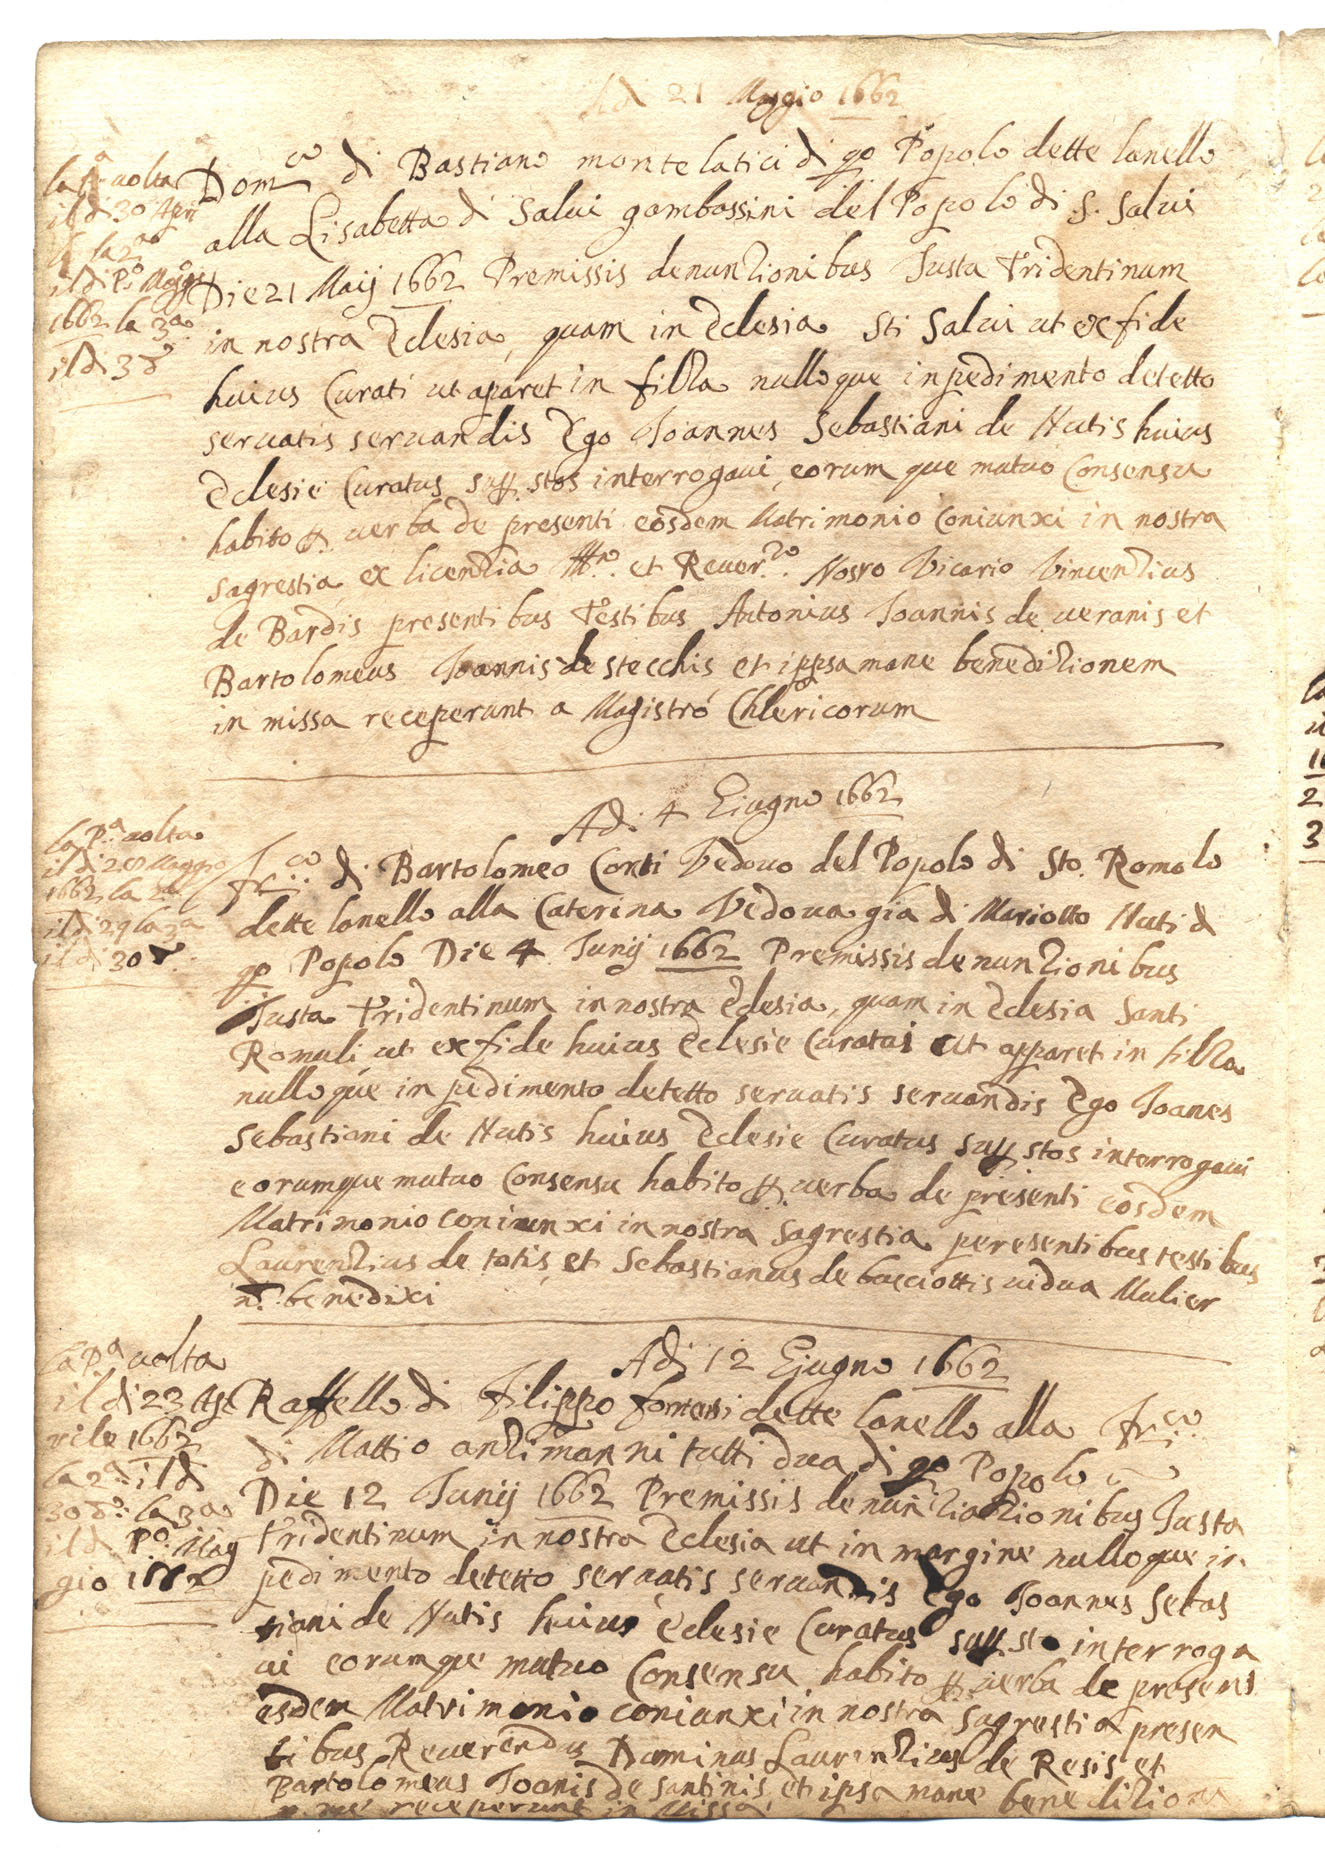 Ad 21 Maggio 1662
la pa uolta
il di 30 April
la 2a
il di Po Maggo
1662 la 3a
il di 3 do
Domco di Bastiano montelatici di qo Popolo dette lanello
alla Lisabetta di Salui gambassini del Popolo di S. Salui
Die 21 Maij 1662 Premissis denuntionibus Justa tridentinum
in nostra Eclesia, quam in Eclesia Sti Salui ut ex fide
huius Curati ut aparet in filza nulloque inpedimento detetto
seruatis seruandis Ego Joannes Sebastiani de Nutis huius
Eclesie Curatus supstos interrogaui, eorum que mutuo Consensu
habito p uerba de presenti eosdem Matrimonio Coniunxi in nostra
sagrestia ex licenzia Illmo et Reuermo Nostro Vicario Vincenzius
de Bardis presentibus testibus Antonius Joannis de ueranis et
Bartolomeus Joannis de stecchis et ippsa mane benedizionem
in missa receperunt a Magistro Chlericorum
Adi 4 Giugno 1662
la Pa uolta
il di 28 Maggio
1662 la 2a
il di 29 la 3a
il di 30 do
Frco di Bartolomeo Conti Vedouo del Popolo di Sto. Romolo
dette lanello alla Caterina Vedoua gia di Mariotto Nuti di
qo Popolo Die 4 Junij 1662 Premissis denunzionibus
Justa tridentinum in nostra Eclesia, quam in Eclesia Santi
Romuli ut ex fide huius Eclesie Curatai ut apparet in filza
nulloque inpedimento detetto seruatis seruandis Ego Joanes
Sebastiani de Nutis huius Eclesie Curatus supstos interrogaui
eorumque mutuo Consensu habito p uerba de presenti eosdem
Matrimonio coniunxi in nostra sagrestia peresentibus testibus
Laurenzius de totis et Sebastianus de bucciottis uidua Mulier
n. benedixi
Adi 12 Giugno 1662
la Pa uolta
il di 23 Ap
rile 1662
la 2a il di
30 do la 3a
il di Po Mag
gio 1662
Raffello di Filippo dette lanello alla Frca
di Mattio anzimanni tutti dua di qo Popolo
Die 12 Junij 1662 Premissis denunziazionibus Justa
tridentinum in nostra Eclesia ut in margine nulloque in
pedimento detetto seruatis seruandis Ego Joannes Sebas
tiani de Nutis huius Eclesie Curatus supsto interroga
ui eorumque mutuo Consensu habito p uerba de presenti
esdem Matrimonio coniunxi in nostra sagrestia presen
tibus Reuerendus Dominus Laurenzius de Resis et
Bartolomeus Joanis de santinis et ipsa mane benedizione
receperunt in Missa